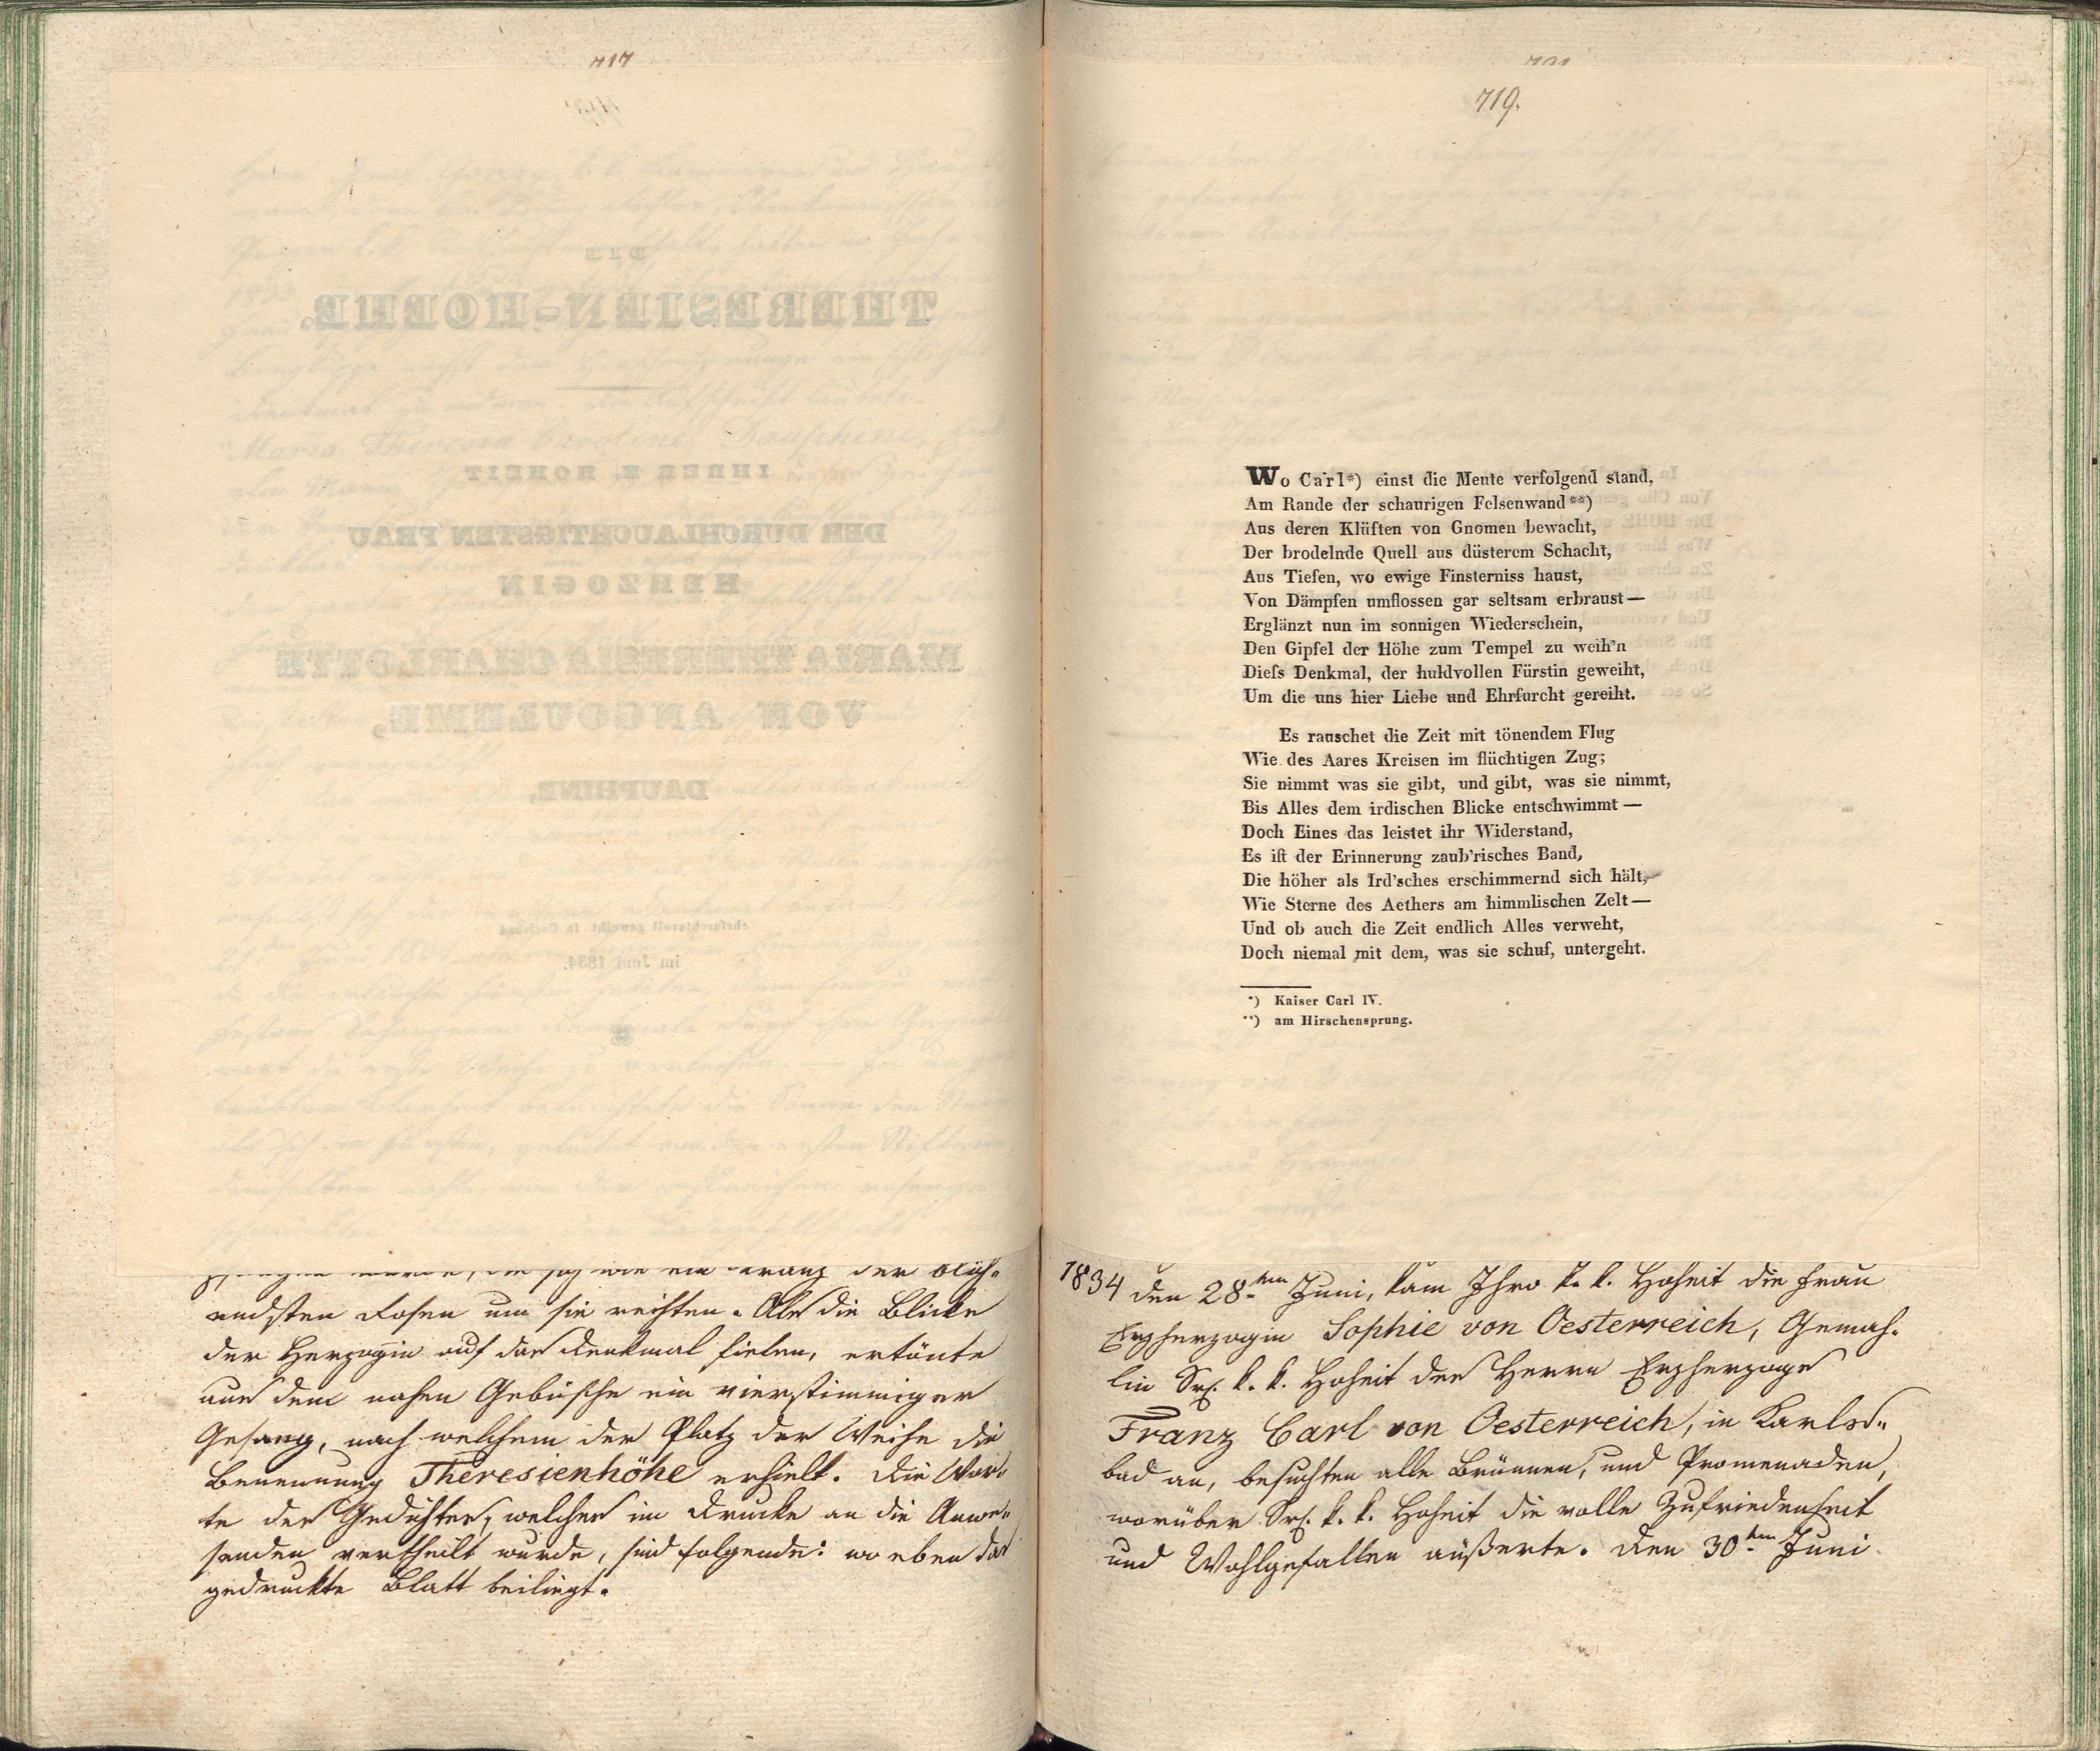 717
endsten Rosen um sie reihten. Als die Blicke
der Herzogin auf das Denkmal fielen, ertönte
aus dem nahen Gebüsche ein vierstimmiger
Gesang, nach welchem der Platz der Weihe die
Benennung Theresienhöhe erhielt. Die Wor„
te des Gedichtes, welches im Drucke an die Anwe„
senden vertheilt wurde, sind folgende: wo eben das
gedruckte Blatt beiliegt.
719.
Wo Carl*) einst die Meute verfolgend stand,
Am Rande der schaurigen Felsenwand**)
Aus deren Klüften von Gnomen bewacht,
Der brodelnde Quell aus düsterem Schacht,
Aus Tiefen, wo ewige Finsterniss haust,
Von Dämpfen umflossen gar seltsam erbraust—
Erglänzt nun im sonnigen Wiederschein,
Den Gipfel der Höhe zum Tempel zu weih'n
Dieſs Denkmal, der huldvollen Fürstin geweiht,
Um die uns hier Liebe und Ehrfurcht gereiht.
Es rauschet die Zeit mit tönendem Flug
Wie des Aares Kreisen im flüchtigen Zug;
Sie nimmt was sie gibt, und gibt, was sie nimmt,
Bis Alles dem irdischen Blicke entschwimmt—
Doch Eines das leistet ihr Widerstand,
Es iſt der Erinnerung zaub'risches Band,
Die höher als Ird'sches erschimmernd sich hält,
Wie Sterne des Aethers am himmlischen Zelt—
Und ob auch die Zeit endlich Alles verweht,
Doch niemal mit dem, was sie schuf, untergeht.
*) Kaiser Carl IV.
**) am Hirschensprung.
1834 den 28ten Juni, kam Ihro k. k. Hoheit die Frau
Erzherzogin Sophie von Oesterreich, Gemah„
lin Sr. k. k. Hoheit des Herrn Erzherzogs
Franz Carl von Oesterreich, in Karls„
bad an, besuchten alle Brünnen, und Promenaden,
worüber Sr. k. k. Hoheit die volle Zufriedenheit
und Wohlgefallen äußerte. Den 30ten Juni